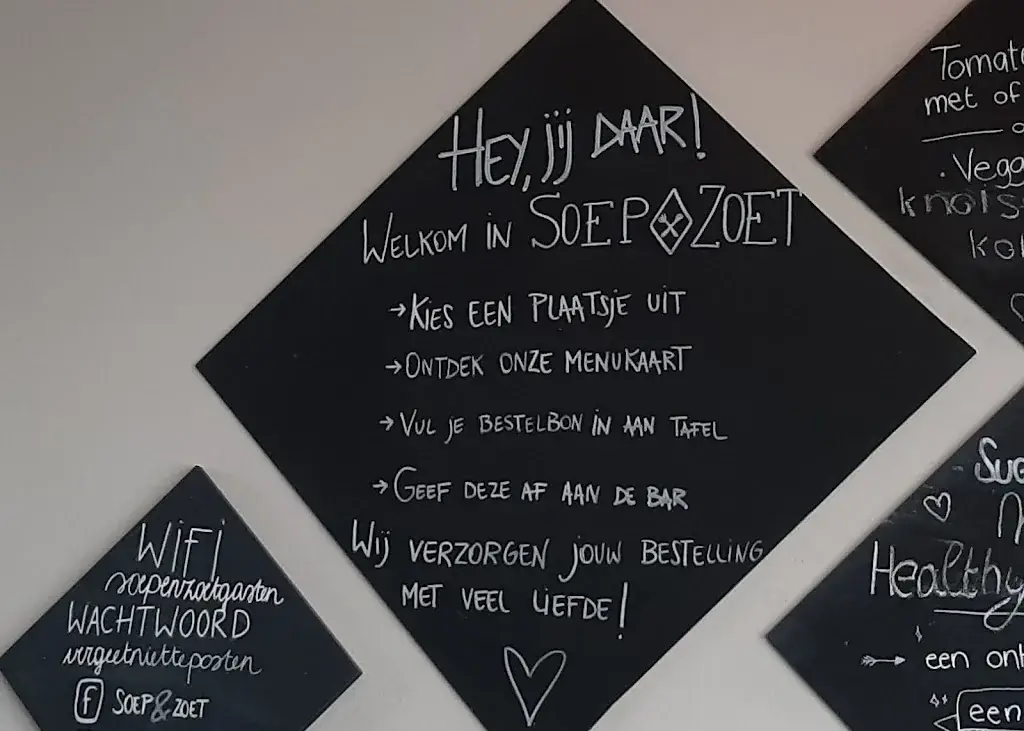 HEY, jij DAAR!
WELKOM iN SOEP ZOET
→ KiES EEN PLAATSjE UiT
→ ONTDEK ONZE MENUKAART
→ VUL jE BESTELBON iN AAN TAFEL
→ GEEF DEZE AF AAN DE BAR
Wij VERZORGEN jOUW BESTELLiNG
MET VEEL LiEFDE!
WiFi
soepenzoetgasten
WACHTWOORD
vergeetnietteposten
f SOEP&ZOET
Tomate
met of
· Vegg
knols
kol
- Sug
Healthy
een ont
een